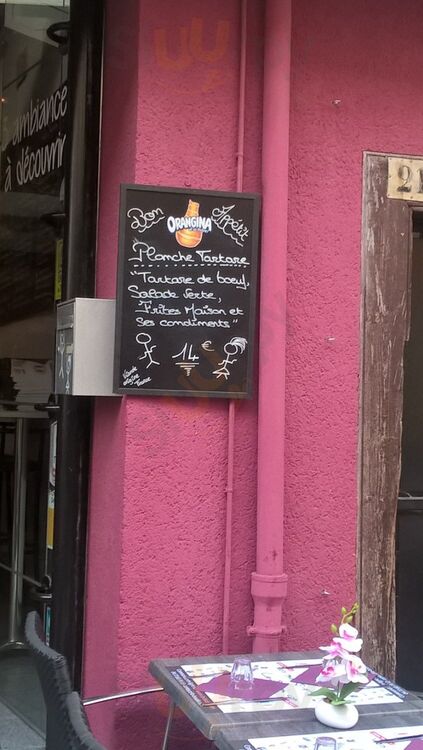 ambiance
à découvrir
21
Bon Appétit
ORANGINA
Planche Tartare
"Tartare de boeuf,
Salade Verte,
Frites Maison et
Ses condiments"
14 €
Viande
origine
France